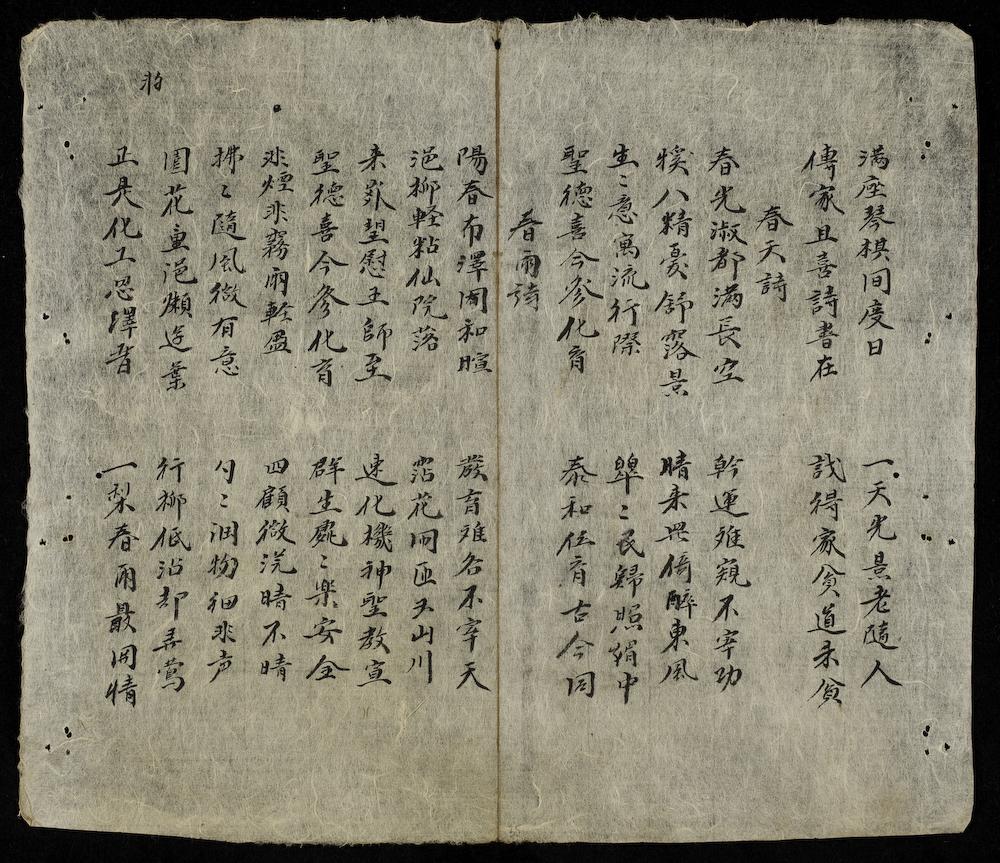 满座琴棋间度日　一天光景老隨人
傳家且喜詩書在　説得家貧道未貧
春天詩
春光淑都满長空　斡運难窺不宰功
八精憂舒露景　晴来無倚醉東風
生〻意寓流行際　皡〻民歸照中
聖德喜今參化育　泰和位育古今同
春雨詩
陽春布澤闻和暄　茂育难名不宰天
浥柳軽粘仙院落　霑花同匝山川
来望慰王師至　速化機神聖教宣
聖德喜今參化育　群生處〻樂安全
非煙非霧雨軽盈　四顧微茫暗不晴
拂〻隨風微有意　匀〻润物细非声
園花重浥懶葉　行柳低沾却弄鶯
正是化工恩澤普　一犁春雨最関情
将